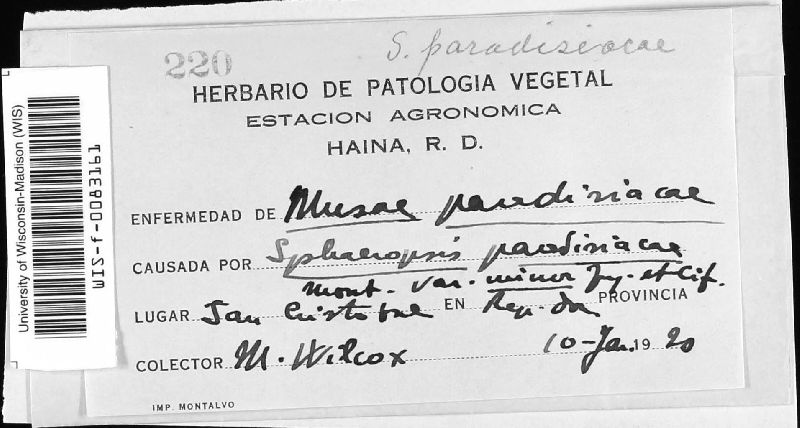 S. paradisiacae
220
HERBARIO DE PATOLOGIA VEGETAL
ESTACION AGRONOMICA
HAINA, R. D.
ENFERMEDAD DE Musae paradisiacae
CAUSADA POR Sphaeropsis paradisiacae
Mont. var. minor Fg. et Cif.
LUGAR San Cristobal EN Rep. Do PROVINCIA
COLECTOR M. Wilcox 10-Jan. 1920
IMP. MONTALVO
University of Wisconsin-Madison (WIS)
WIS-f-0083161